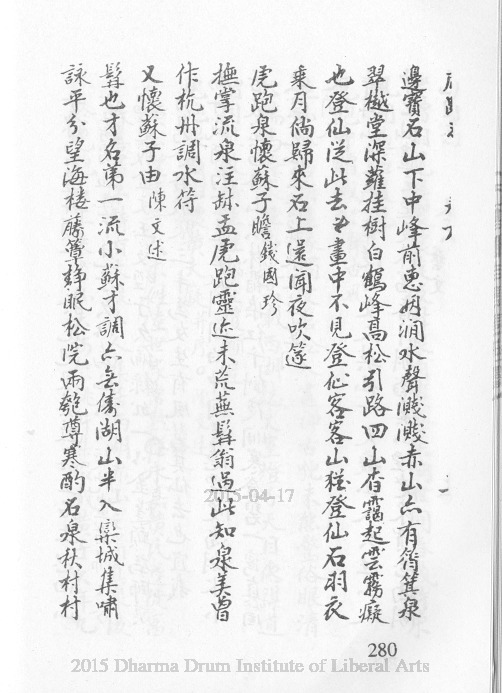 邊寶石山下中峰前惠因澗水聲濺濺赤山亦有筲箕泉
翠樾堂深蘿挂樹白鶴峰高松引路四山杳靄起雲霧癡
也登仙從此去畫中不見登仙客客山猶登仙石羽衣
乘月倘歸來石上還聞夜吹篴
虎跑泉懷蘇子瞻 錢國珍
撫掌流泉注缽盂虎跑靈迹未荒蕪髯翁過此知泉美曾
作杭州調水符
又懷蘇子由 陳文述
髯也才名第一流小蘇才調亦無儔湖山半入欒城集嘯
詠平分望海樓藤簟靜眠松院雨匏尊寒酌石泉秋村村
280
2015-04-17
2015 Dharma Drum Institute of Liberal Arts